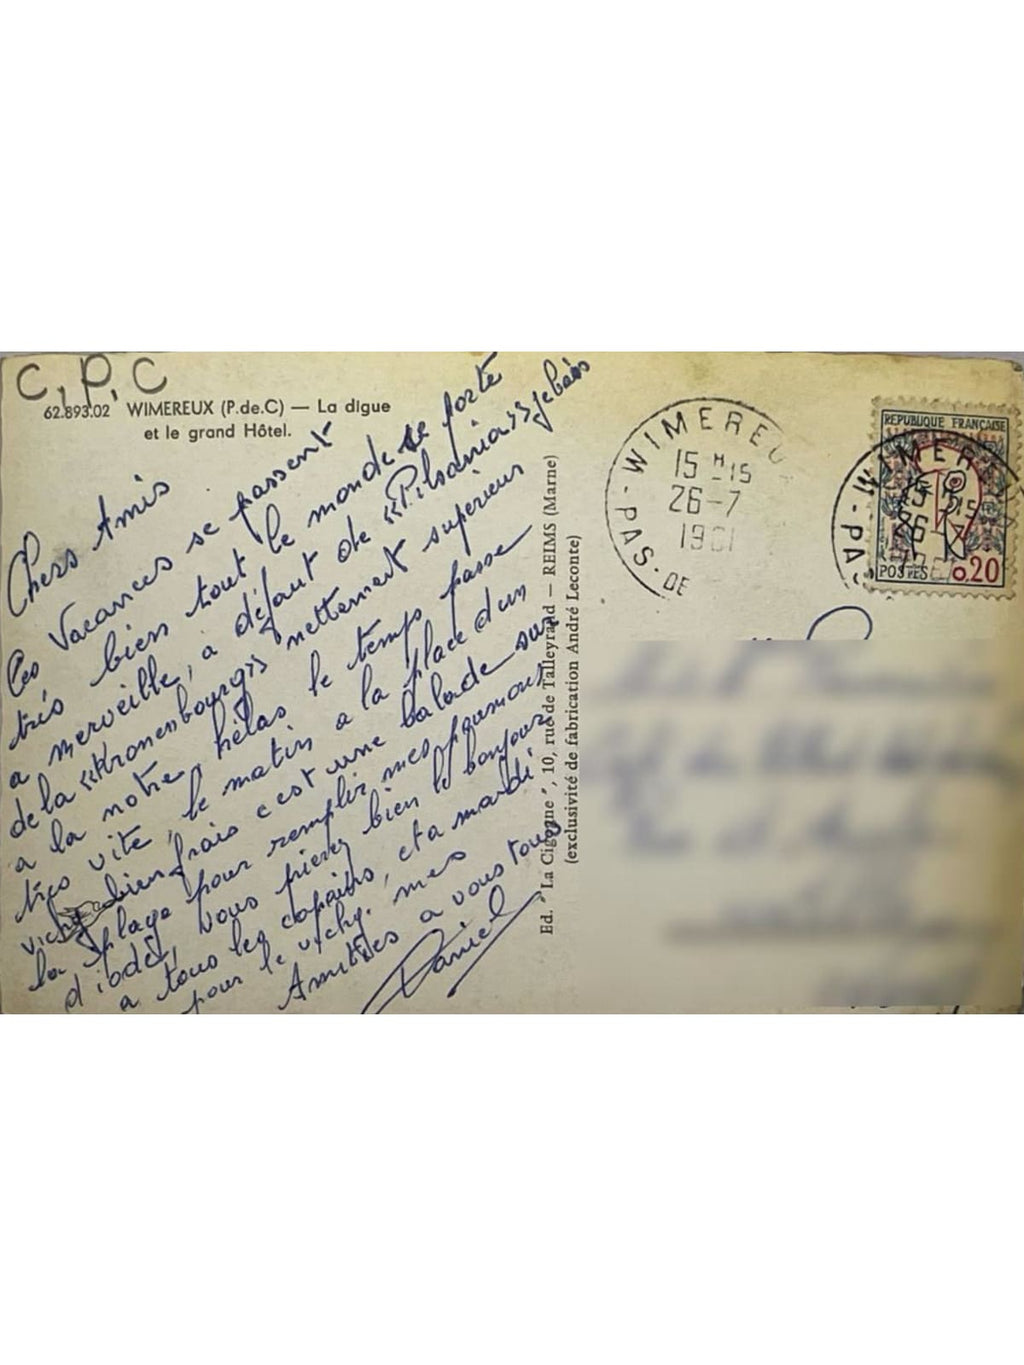 C.P.C
62.893.02 WIMEREUX (P.de.C) — La digue
et le grand Hôtel.
Chers Amis
Ces Vacances se passent
très bien tout le monde se porte
a merveille, a défaut de «Pilsania» je bois
de la «Kronenbourg» nettement superieur
a la notre, hélas le temps passe
très vite, le matin a la place d'un
vichy bien frais c'est une balade sur
la plage pour remplir mes poumons
d'iode, vous pierez bien le bonjour
a tous les copains, et a mardi
pour le vichy. mes
Amitiés a vous tous
Daniel
Ed. "La Cigogne", 10, rue de Talleyrand — REIMS (Marne)
(exclusivité de fabrication André Leconte)
WIMEREU
15 H 15
26-7
1961
PAS-DE
REPUBLIQUE FRANÇAISE
POSTES 0,20
WIMERE
PA